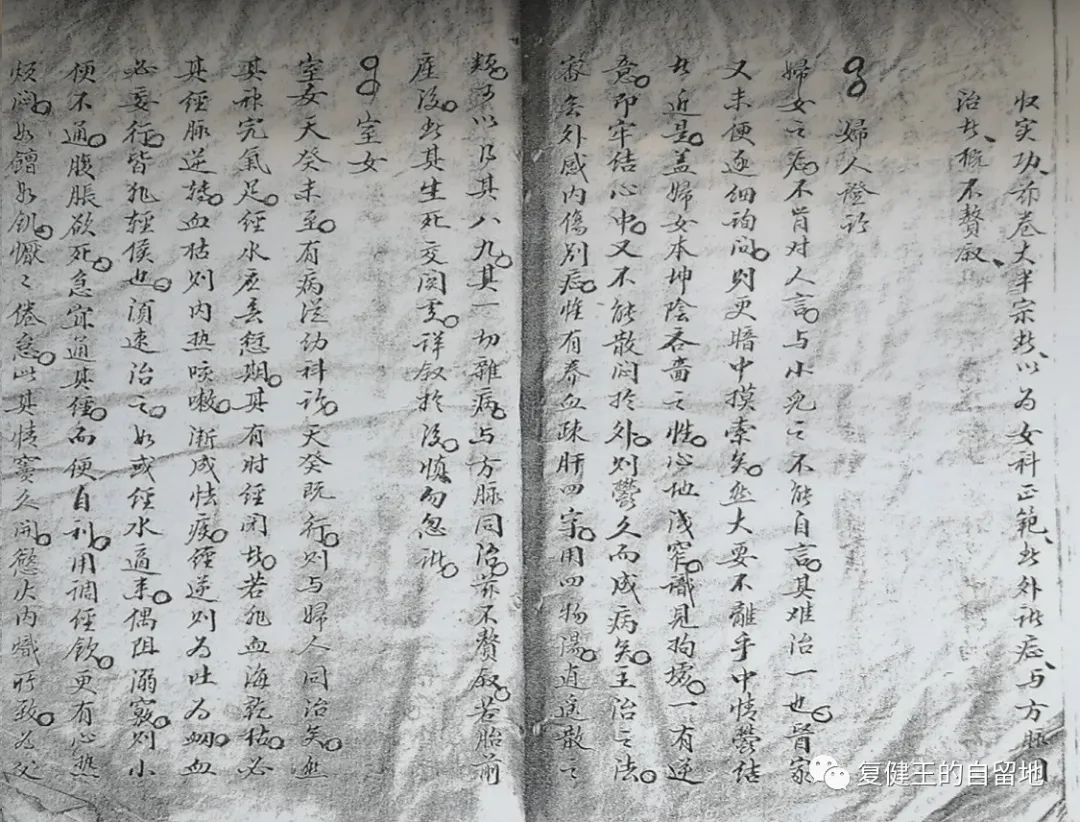 収实功、茲卷大半宗於、以为女科正範、此外諸症、与方脉同
治者、槪不贅叙、
婦人證訣
婦女之症。不肯对人言。与小児之不能自言。其难治一也。醫家
又未便逐细詢问。则更暗中摸索矣。然大要不離乎中情鬱结
者近是。盖婦女本坤陰吝嗇之性。心地浅窄。識見拘墟。一有逆
意。即牢结心中。又不能散闷於外。则鬱久而成病矣。主治之法。
審系外感内傷别症。惟有养血疎肝四字。用四物湯。逍遥散之
類。可以以及其八九。其一切雜病。与方脉同治。茲不贅叙。若胎前
産後。於其生死交関。更详叙於後。慎勿忽諸。
室女
室女天癸未至。有病從幼科論。天癸既行。则与婦人同治矣。然
其神完氣足。经水应無愆期。其有时经闭者。若非血海乾枯。必
其经脉逆转。血枯则内热咳嗽。漸成怯疾。经逆则为吐为衂。血
必妄行。皆非轻候也。須速治之。如或经水適来。偶阻溺竅。则小
便不通。腹脹欲死。急宜通其经。而便自利。用调经飲。更有心热
烦闷。如饐如飢。懨々倦怠。此其情竇久開。慾火内熾所致。为父
复健王的自留地